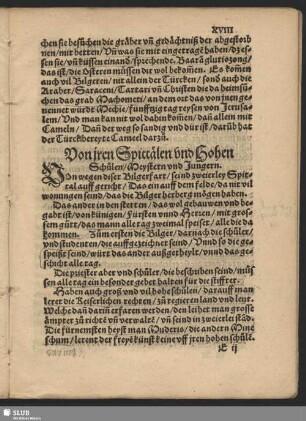 XVIII
chen sie besůchen die gräber vñ gedächtniß der abgestorb
nen / mit betten / Vñ was sie mit eingetragē haben / dz es=
sen sie / vñ küssen einand / sprechende. Baarã glutiozong /
das ist / die Osteren müssen dir wol bekomē. Es komen
auch vil Bilgeren / nit allein der Türcken / sond auch die
Araber / Saraceni / Tartari vñ Christen die da heimsů=
chen das grab Machometi / an dem ort das von jnen ge=
nennet würdt Mechie / fünfftzig tag reysen von Jerusa=
lem / Vnd man kan nit wol dahin komē / dañ allein mit
Cameln / Dañ der weg so sandig vnd dürr ist / darüb hat
der Türck bereyte Cameel darzů.
Von jren Spittälen vnd Hohen
Schůlen / Meystern vnd Jungern.
Von wegen diser Bilgerfart / seind zweierley Spit=
tal auff gericht / Das ein auff dem felde / da mit vil
wonungen seind / das die Bilger herberg mögen haben.
Das ander in den stetten / das wol gebauwen vnd be=
gabt ist / von künigen / Fürsten vnnd Herren / mit gros=
sem gůrt / das mann alle tag zweimal speiset / alle die da
kommen. Zům ersten die Bilger / darnach die schůler /
vnd studenten / die auffgezeichnet seind / Vnnd so die ge=
speißt seind / würt das ander außgetheylt / vnnd das ge=
schicht alle tag.
Die priester aber vnd schůler / die beschriben seind / můs=
sen alle tag ein besonder gebet halten für die stiffter.
Haben auch groß vnd vil hohe schůlen / darauff man
lerer die Keiserlichen rechten / zů regieren land vnd leut.
Welche dañ darin erfaren werden / den leiher man grosse
ämpter zů richtē vñ verwaltē / vñ seind in zweierlei städ.
Die fürnemsten heyst man Muderis / die andern Mine
schum / lerent der freyē künst keine vff jren hohen schůlē.
E ij
SLUB